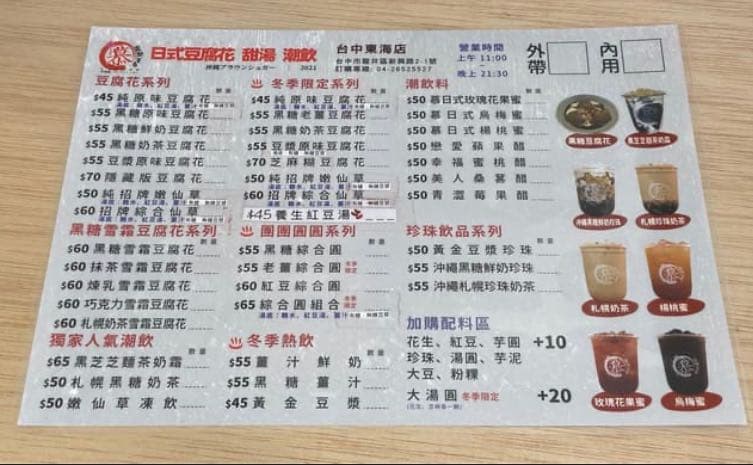 慕
日式豆腐花 甜湯 潮飲
沖繩ブラウンシュガー 2021
台中東海店
台中市龍井區新興路2-1號
訂購專線: 04-26525527
營業時間
上午 11:00
~
晚上 21:30
外帶
內用
豆腐花系列
數量
$45 純原味豆腐花
湯底:糖水、紅豆湯、薑汁
$55 黑糖原味豆腐花
$55 黑糖鮮奶豆腐花
$55 黑糖奶茶豆腐花
$55 豆漿原味豆腐花
$70 隱藏版豆腐花
$50 純招牌嫩仙草
$60 招牌綜合仙草
黑糖雪霜豆腐花系列
數量
$60 黑糖雪霜豆腐花
$60 抹茶雪霜豆腐花
$60 煉乳雪霜豆腐花
$60 巧克力雪霜豆腐花
$60 札幌奶茶雪霜豆腐花
獨家人氣潮飲
數量
$65 黑芝芝麵茶奶霜
$50 札幌黑糖奶茶
$50 嫩仙草凍飲
冬季限定系列
數量
$45 純原味豆腐花
湯底:糖水、紅豆湯、薑汁
$55 黑糖老薑豆腐花
$55 黑糖奶茶豆腐花
$55 豆漿原味豆腐花
$70 芝麻糊豆腐花
$50 純招牌嫩仙草
湯底:糖水、紅豆湯、薑汁
$60 招牌綜合仙草
$45 養生紅豆湯
團團圓圓系列
數量
$55 黑糖綜合圓
$55 老薑綜合圓 冬季限定
$60 紅豆綜合圓
$65 綜合圓組合 冬季限定
湯底:糖水、紅豆湯、薑汁
冬季熱飲
數量
$55 薑汁鮮奶
$55 黑糖薑汁
$45 黃金豆漿
潮飲料
數量
$50 慕日式玫瑰花果蜜
$50 慕日式烏梅蜜
$50 慕日式楊桃蜜
$50 戀愛蘋果醋
$50 幸福蜜桃醋
$50 美人桑葚醋
$50 青澀莓果醋
珍珠飲品系列
數量
$50 黃金豆漿珍珠
$55 沖繩黑糖鮮奶珍珠
$55 沖繩札幌珍珠奶茶
加購配料區
花生、紅豆、芋圓 +10
珍珠、湯圓、芋泥
大豆、粉粿
大湯圓 冬季限定 +20
黑糖豆腐花
黑芝芝麵茶奶霜
沖繩黑糖鮮奶珍珠
札幌珍珠奶茶
札幌奶茶
楊桃蜜
玫瑰花果蜜
烏梅蜜